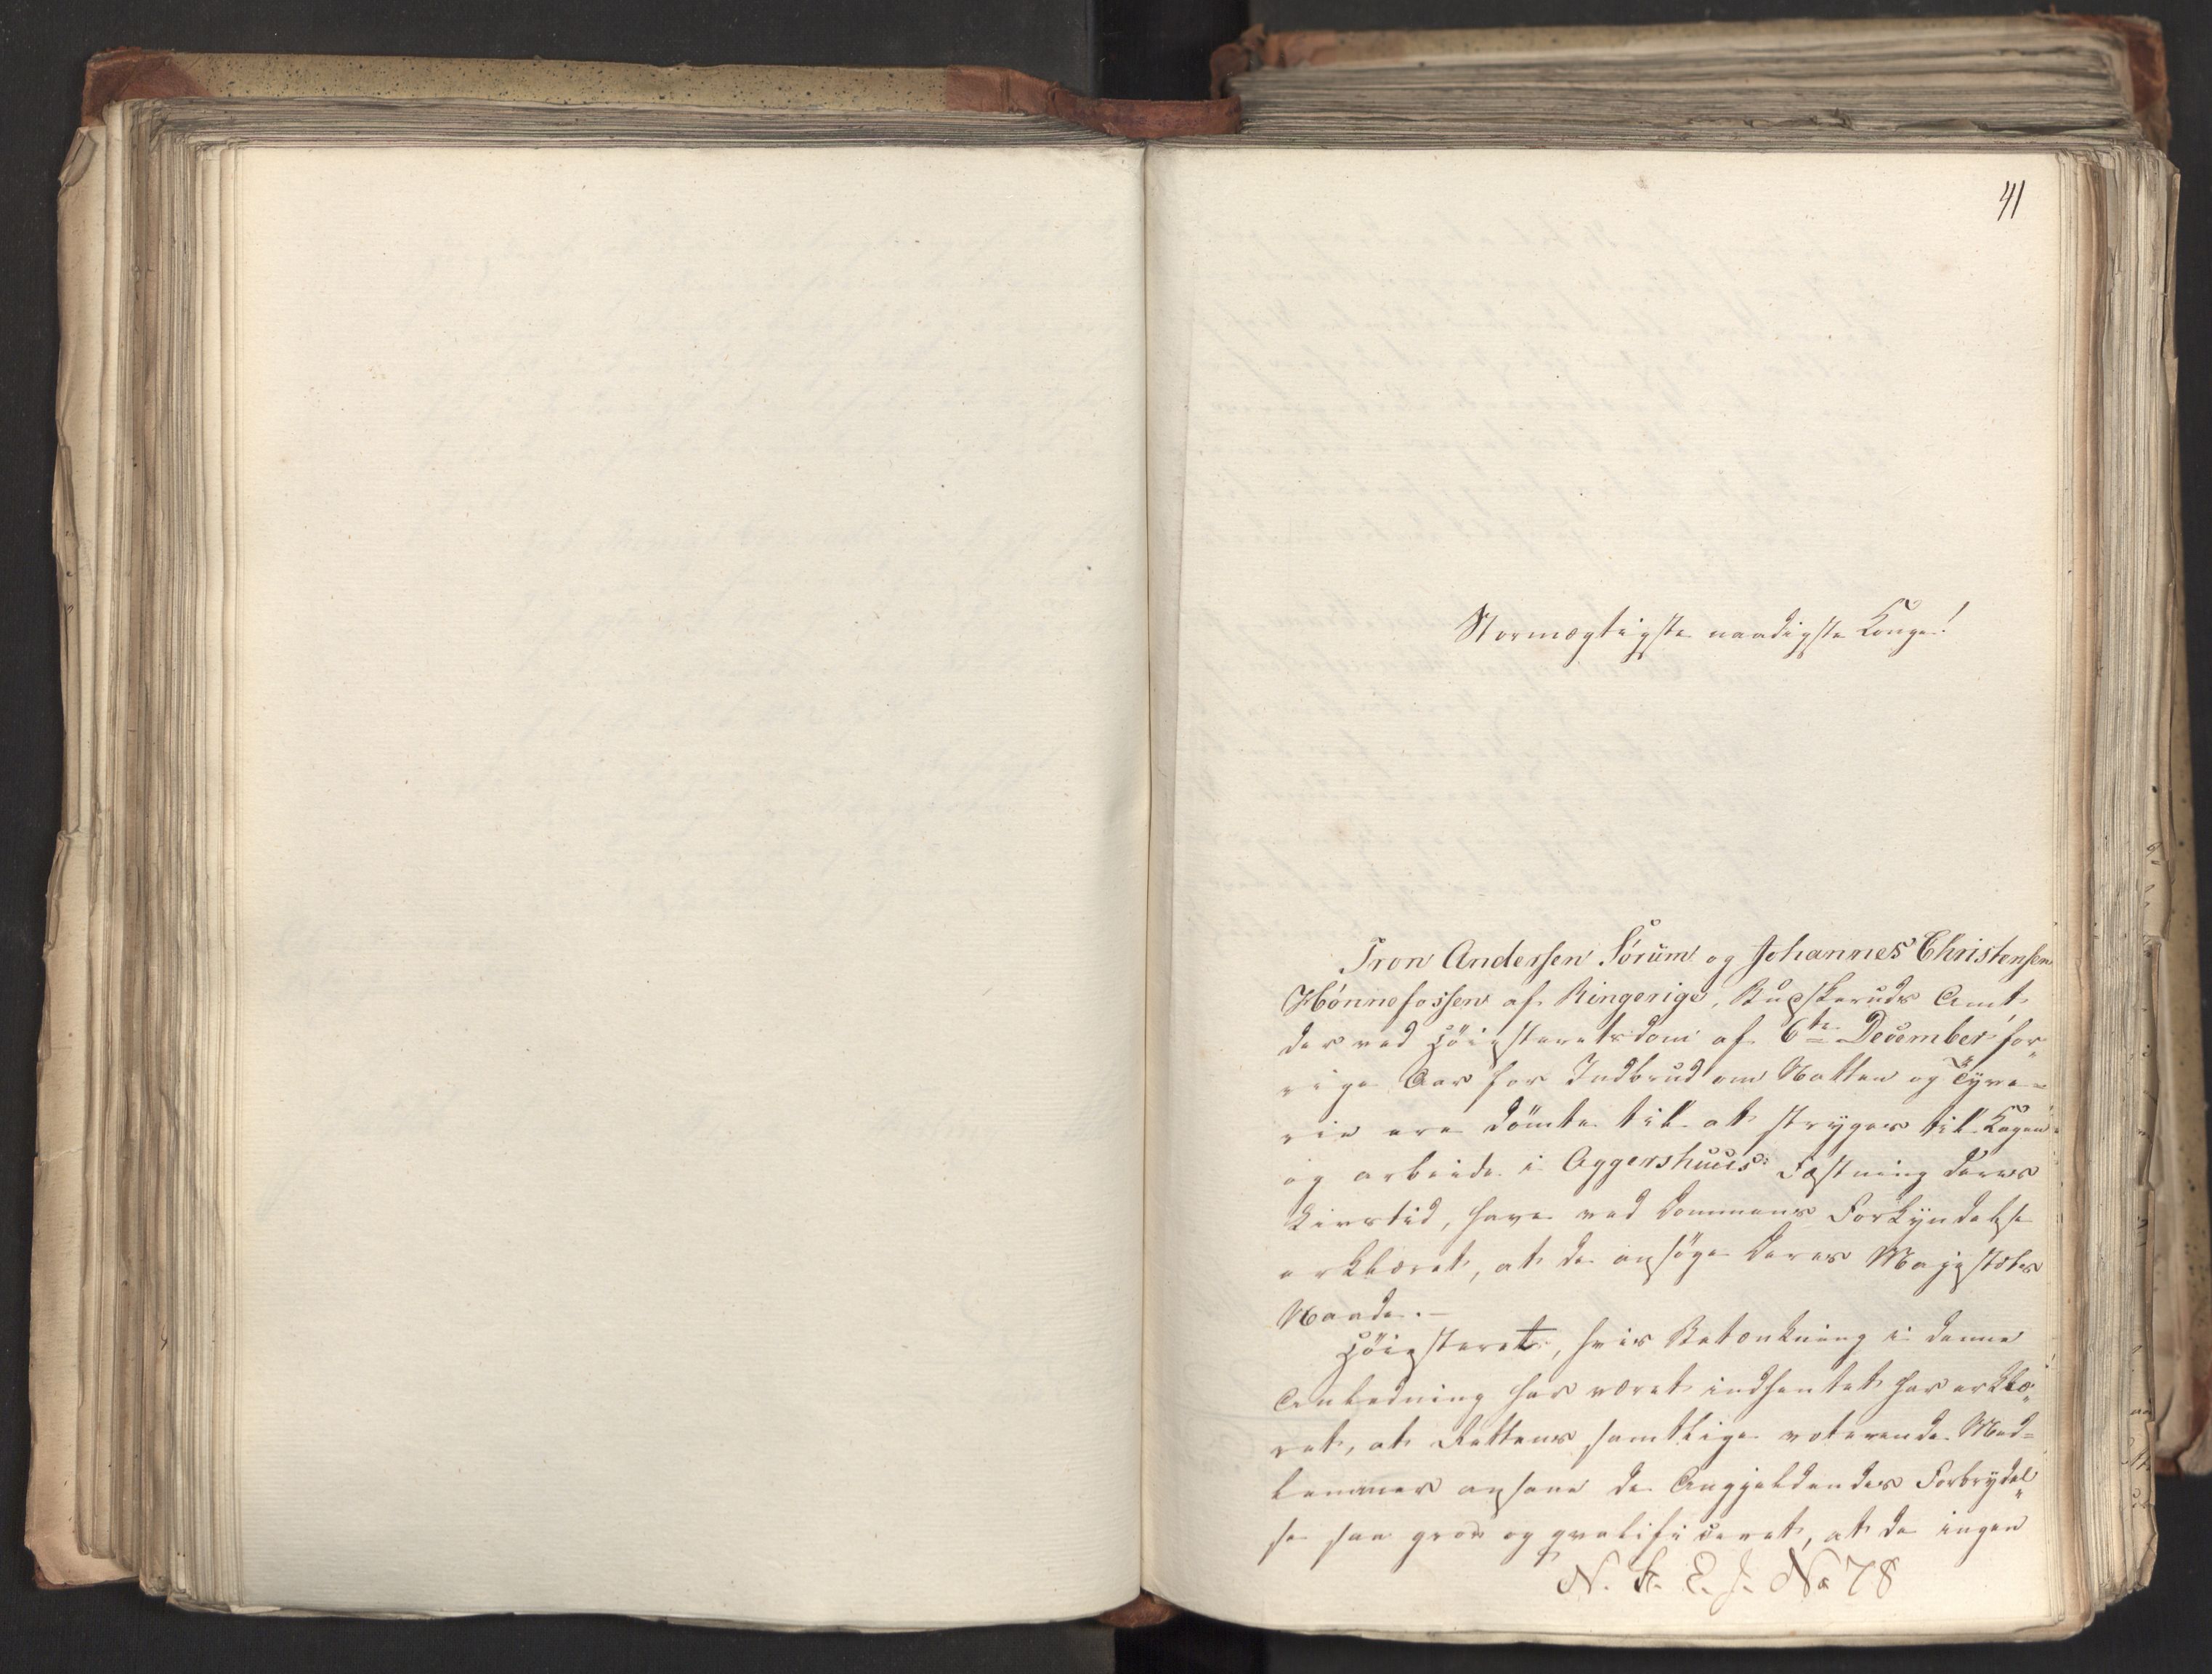 41
Stormægtigste naadigste Konge!
Tron Andersen Sørum og Johannes Christensen
Hønnefossen af Ringerige, Budskeruds Amt
der ved Høiesteretsdom af 6te December for„
rige Aar for Indbrud om Natten og Tyve=
rie ere dømte til at stryges til Kagen
og arbeide i Aggershuus: Fæstning deres
Livstid, have ved Dommens Forkyndelse
erklæret, at de ansøge Deres Majestæts
Naade.—
Høiesteret, hvis Betænkning i denne
Anledning har været indhentet har erklæ„
ret, at Rettens samtlige voterende Med=
lemmer ansaae de Angjeldendes Forbrydel„
se saa grov og qvalificeret, at de ingen
N. R. E. J. No 78